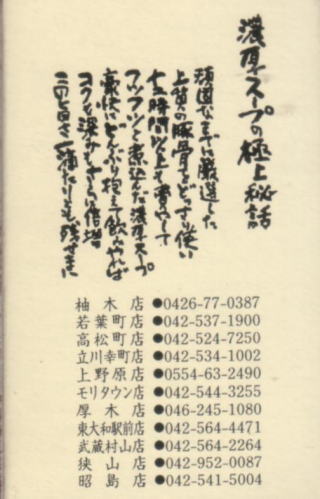 濃厚スープの極上秘話
頑固なまでに厳選した
上質の豚骨をどっさり使い
十五時間以上も費やして
フツフツと煮込んだ濃厚スープ
豪快にどんぶり抱えて飲みやれば
コクと深みもさらに倍増
この旨さ一滴たりとも残すまじ
柚木店●0426-77-0387
若葉町店●042-537-1900
高松町店●042-524-7250
立川幸町店●042-534-1002
上野原店●0554-63-2490
モリタウン店●042-544-3255
厚木店●046-245-1080
東大和駅前店●042-564-4471
武蔵村山店●042-564-2264
狭山店●042-952-0087
昭島店●042-541-5004